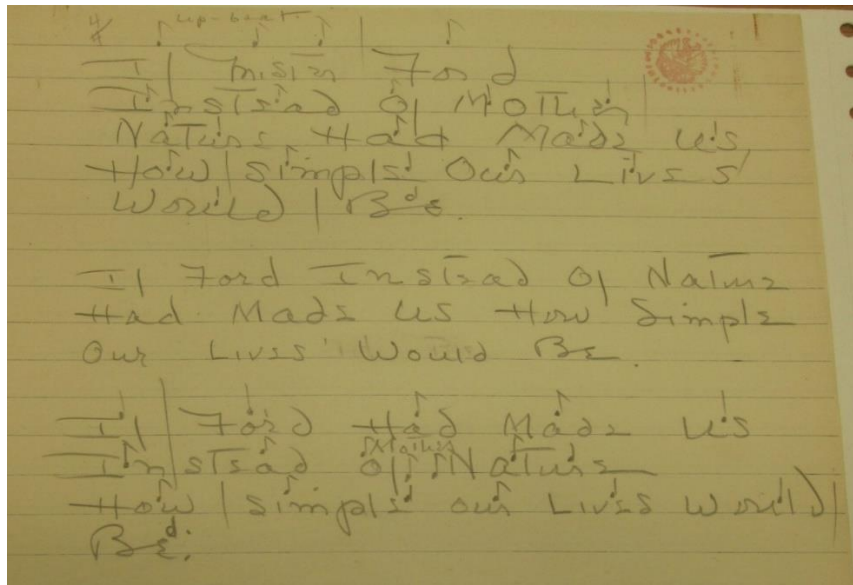 4/4 up-beat
If Mistr Ford
Instead Of Mother
Nature Had Made Us
How Simple Our Lives
Would Be.
If Ford Instead Of Nature
Had Made Us How Simple
Our Lives Would Be.
If Ford Had Made Us
Mother
Instead Of Nature
How Simple Our Lives Would
Be.